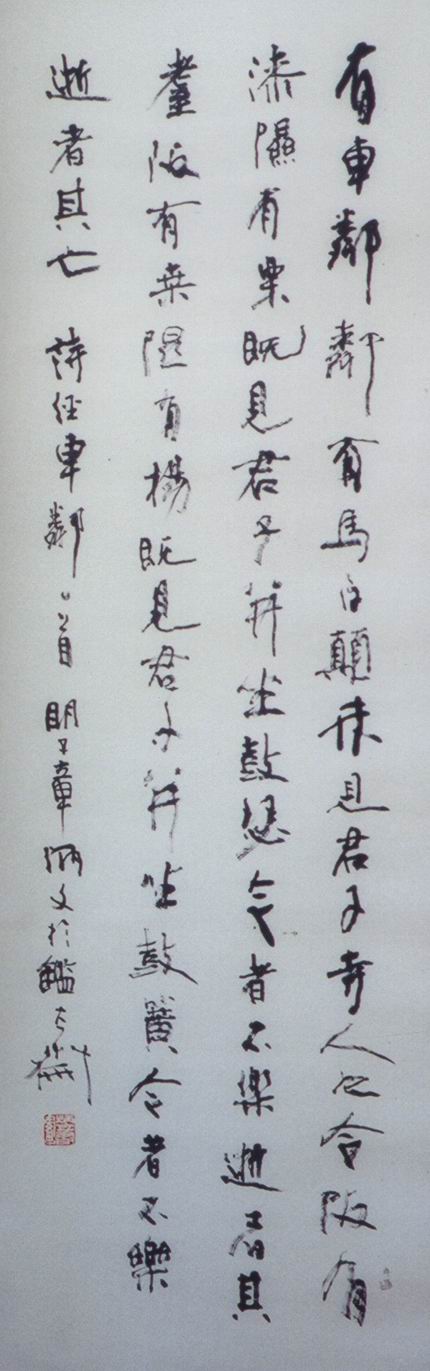 有車鄰鄰有馬白顛未見君子寺人之令阪有
漆隰有栗既見君子並坐鼓瑟今者不樂逝者其
耋阪有桑隰有楊既見君子並坐鼓簧今者不樂
逝者其亡 詩经車鄰首 明子章炳文於